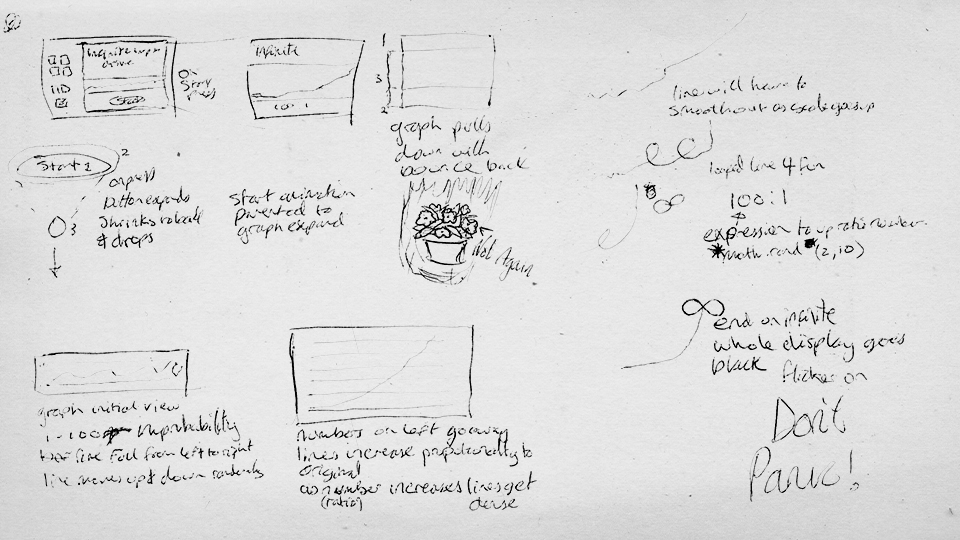 Infinite impr
drive
Start
on
Start
press
Infinite
100:1
1
3
2
graph pulls
down with
bounce back
Start 1
2
on press
button expands
3
Shrinks to ball
& drops
Start animation
parented to
graph expand
Not Again
line will have to
smooth out as scale goes up
looped line 4 fun
100:1
expression to up ratio number
*math.rand*(2,10)
end on infinite
whole display goes
black
flicker on
Don't
Panic!
graph initial view
1-100 improbability
line from left to right
line moves up & down randomly
numbers on left go away
lines increase proportionally to
original
as number increases lines get
(ratio)
dense